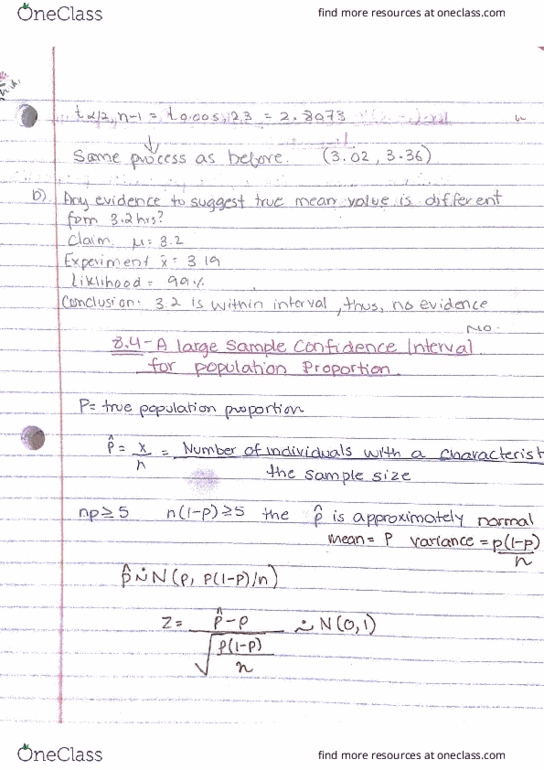 OneClass
find more resources at oneclass.com
tα/2, n-1 = t0.005, 23 = 2.8073
Same process as before. (3.02, 3.36)
b) Any evidence to suggest true mean value is different
fom 3.2hrs?
Claim μ = 3.2
Experiment x̄ = 3.19
liklihood = 99%
Conclusion: 3.2 is within interval, thus, no evidence
NO.
8.4-A large Sample Confidence Interval
for population Proportion.
P = true population proportion
p̂ = x/n = Number of individuals with a characterist
the sample size
np≥5 n(1-p)≥5 the p̂ is approximately normal
mean = P variance = p(1-p)/n
p̂ ∼̇ N(p, p(1-p)/n)
Z = p̂-p / √(p(1-p)/n) ∼̇ N(0,1)
OneClass
find more resources at oneclass.com